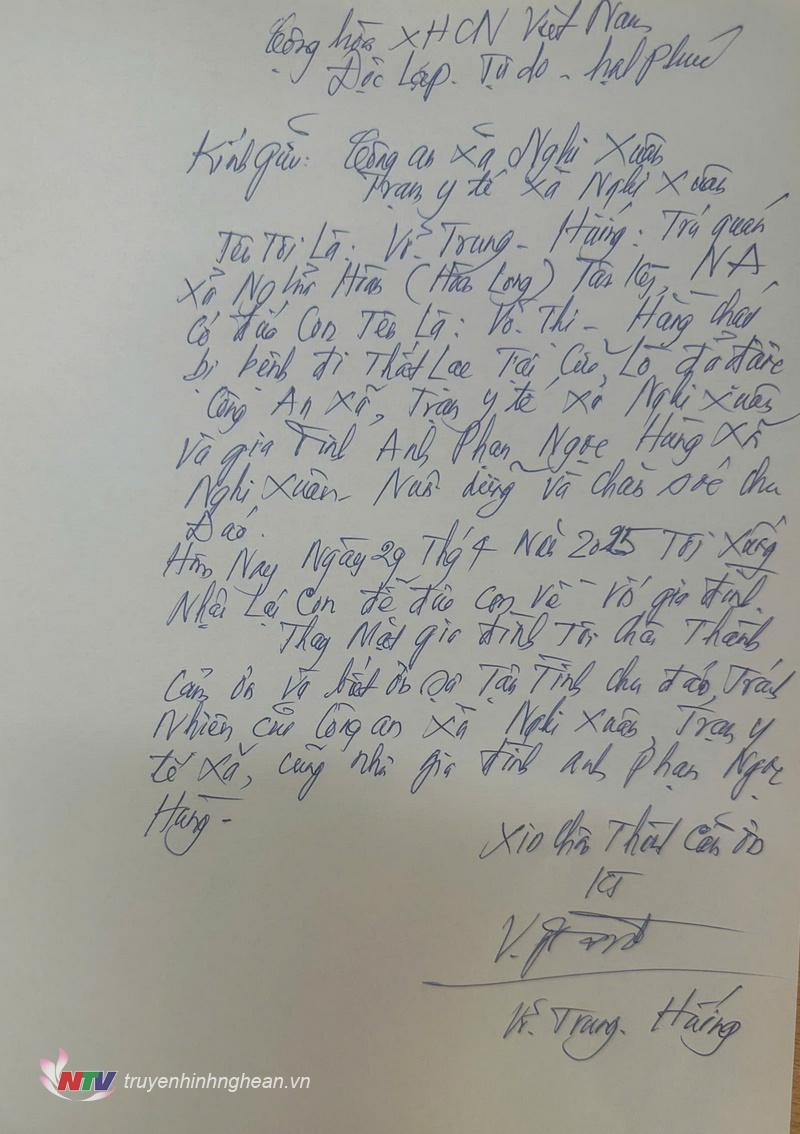 Cộng hòa XHCN Việt Nam
Độc Lập - Tự do - hạnh phúc
Kính gửi: Công an xã Nghi Xuân
Trạm y tế xã Nghi Xuân
Tên Tôi Là: Võ Trung - Hường: Trú quán
xã Nghĩa Hoàn (Hoàn Long) Tân Kỳ, NA
Có đứa Con Tên Là: Võ Thị - Hằng cháu
bị bệnh đi Thất Lạc Tại Cửa Lò đã được
Công An xã, Trạm y tế xã Nghi Xuân
và gia đình Anh Phạm Ngọc Hùng xã
Nghi Xuân - Nuôi dưỡng và chăm sóc chu
Đáo.
Hôm Nay Ngày 29 Tháng 4 Năm 2025 Tôi Xuống
Nhận Lại Con để đưa con về với gia đình.
Thay Mặt gia đình Tôi chân Thành
Cảm ơn và biết ơn sự Tận Tình chu đáo, Trách
Nhiệm của Công an xã Nghi Xuân, Trạm y
tế xã, cũng như gia đình anh Phạm Ngọc
Hùng -
Xin chân Thành Cảm ơn
Võ Trung - Hường
NTV truyenhinhnghean.vn